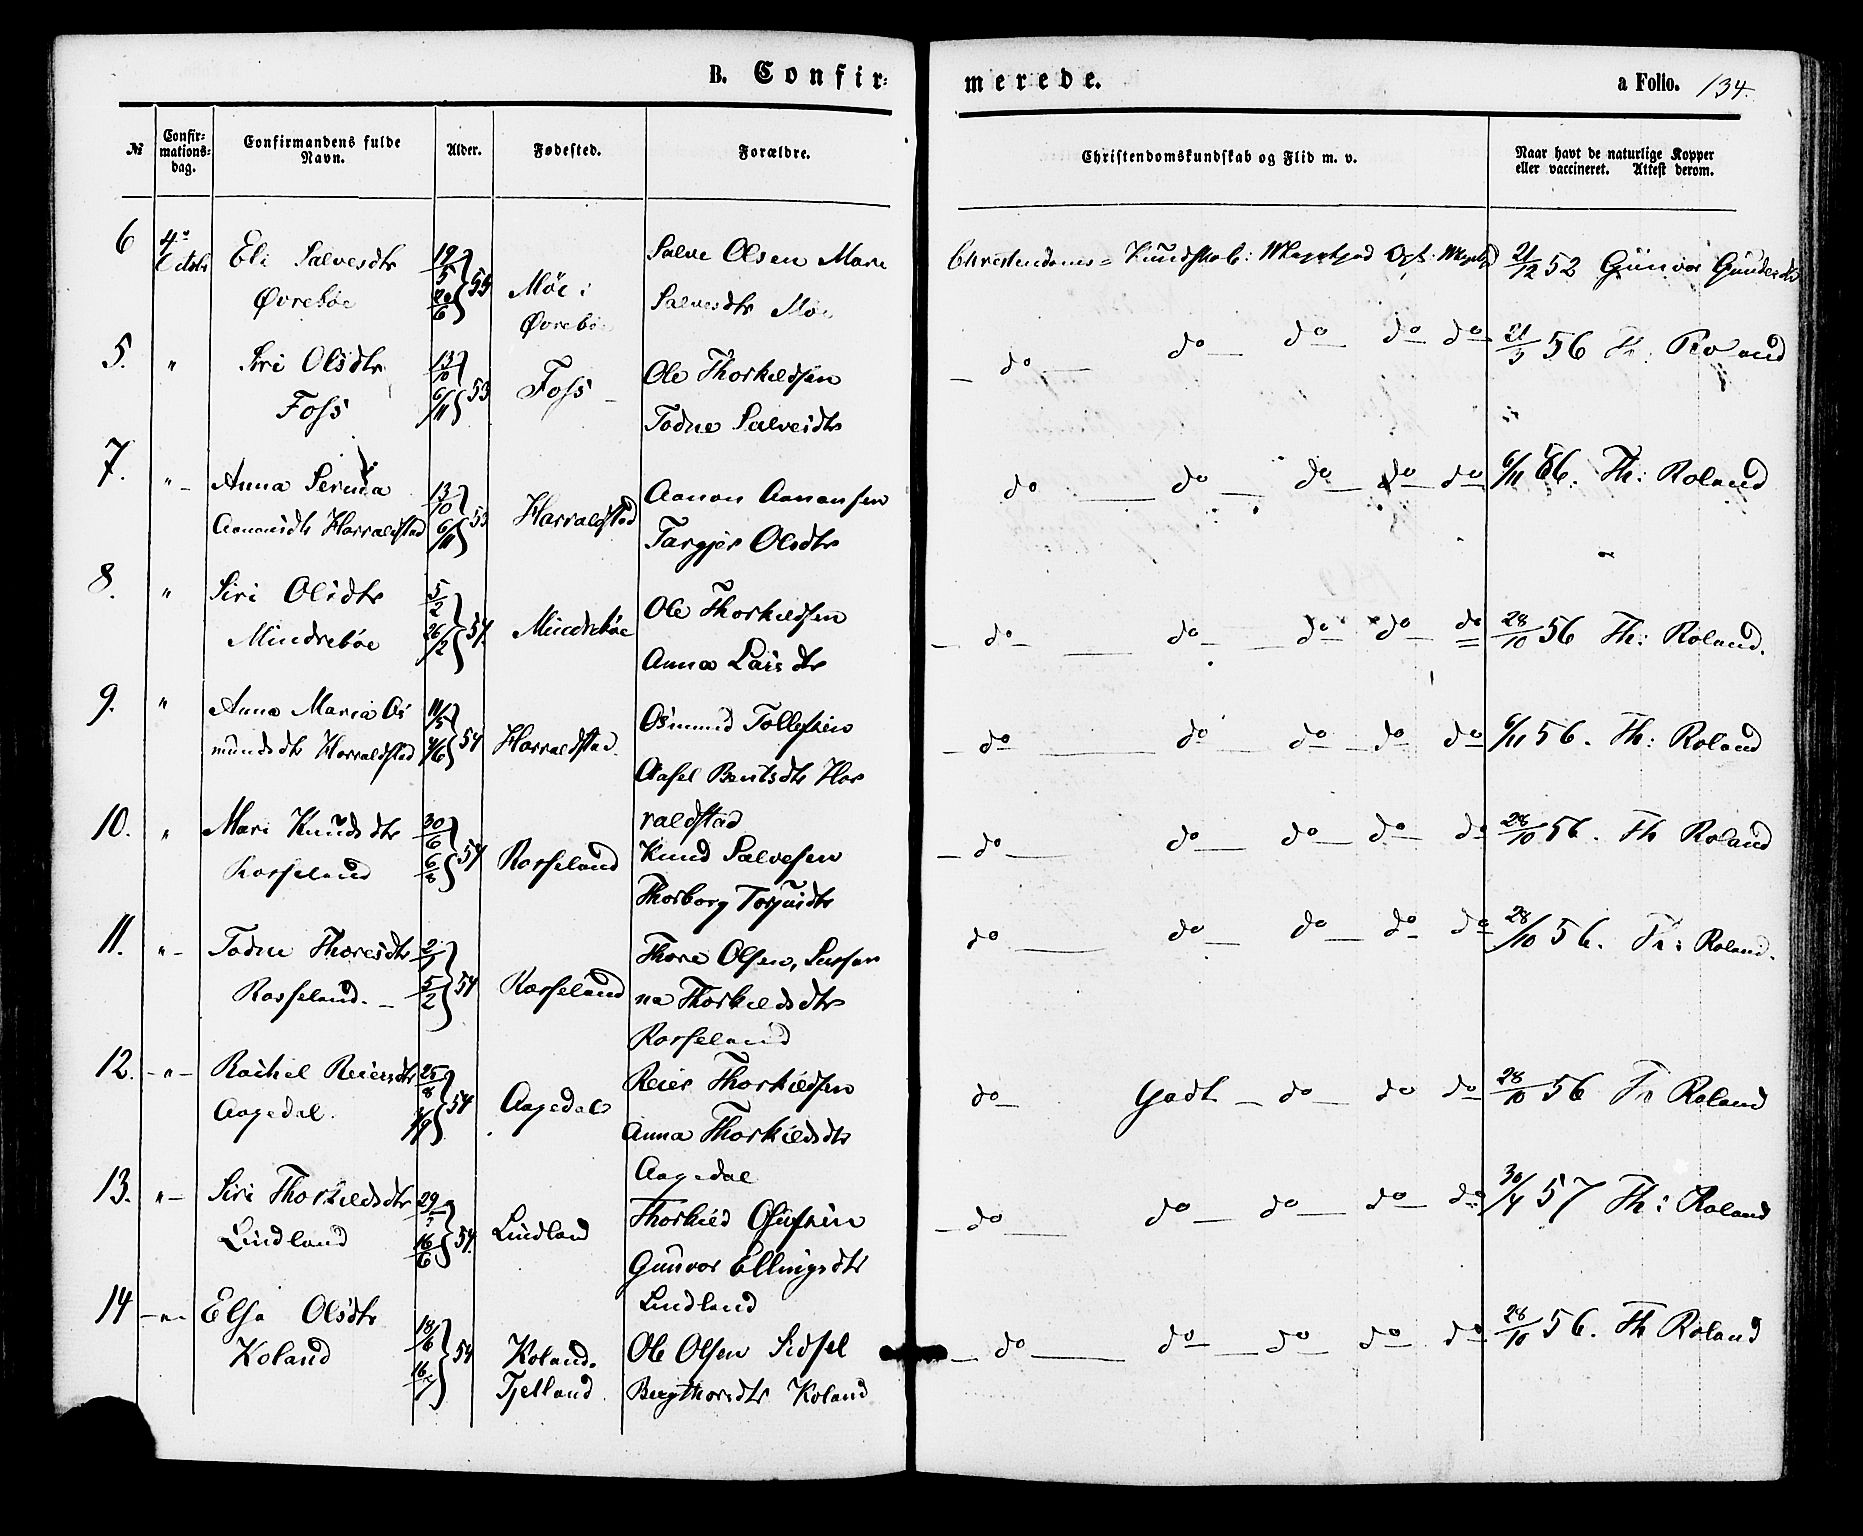 B. Confir-
merede.
a Folio. 134.
№
Confir-
mations-
dag.
Confirmandens fulde
Navn.
Alder.
Fødested.
Forældre.
Christendomskundskab og Flid m. v.
Naar havt de naturlige Kopper
eller vaccineret. Attest derom.
6 4de Eli Salvesdtr 19/5 55 Møe i Salve Olsen Mari Christendoms= Kundskab: Megetgod 21/12 52 Gunvor
Øvrebøe Øvrebøe Salvesdtr Møe
5. " Siri Olsdtr 13/10 53 Foss Ole Thorkildsen do do do do do 56 Th: Roland
Foss 6/11 Todne Salvesdtr
7. " Anna Serina 13/10 53 Harraldstad Aanon Aanonsen do do do do do 6/11 56. Th: Roland
Aanonsdtr Harraldstad 6/11 Targjer Olsdtr
8. " Siri Olsdtr 5/2 54. Mindrebøe Ole Thorkildsen do do do do do 28/10 56 Th: Roland.
Mindrebøe 26/2 Anna Larsdtr
9. " Anna Maria Os 11/5 54 Harraldstad Osmund Tollefsen do do do do do 6/11 56. Th: Roland
mundsdtr Harraldstad Aasel Bentsdtr Har
raldstad
10. " Mari Knudsdtr 30/6 54 Rosseland Knud Salvesen do do do do do 28/10 56. Th Roland
Rosseland 6/8 Thorborg
11. " Todne Thoresdtr 54 Rosseland Thore Olsen, Sussan do do do do do 28/10 56. Th: Roland.
Rosseland. 5/2 na Thorkildsdtr
Rosseland
12. " Rachel Reiersdtr 25/8 54 Aagedal Reier Thorkildsen do Godt do do do 28/10 56 Th Roland
Aagedal. Anna Thorkildsdtr
Aagedal
13. " Siri Thorkildsdtr 54. Lindland Thorkild do do do do do 30/4 57 Th: Roland
Lindland 16/6 Gunvor Ellingsdtr
Lindland
14 " Elsa Olsdtr 18/6 54 Koland. Ole Olsen Sidsel do do do do do 28/10 56. Th Roland
Koland 16/7 Tjelland Bergthorsdtr Koland